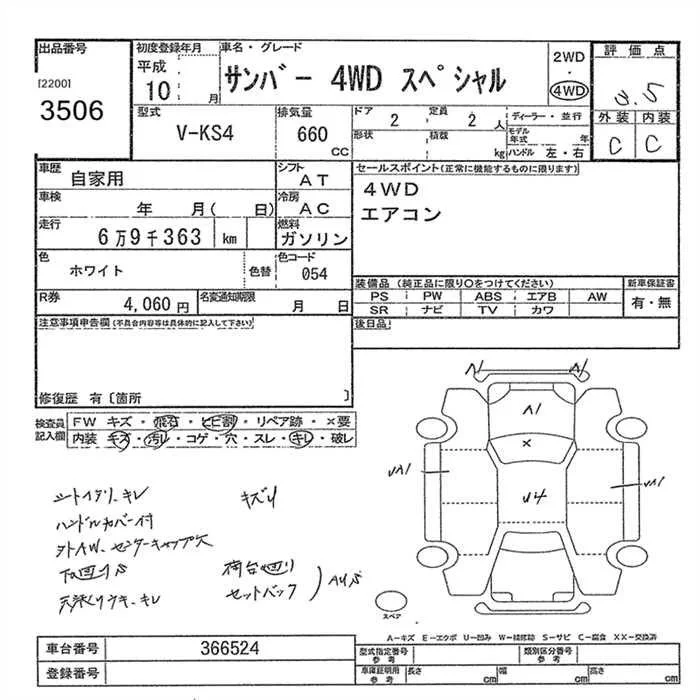 出品番号
[2200]
3506
初度登録年月
平成
10 月
車名・グレード
サンバー 4WD スペシャル
2WD
・
4WD
評価点
3.5
外装 内装
C C
型式
V-KS4
排気量
660
CC
ドア
2
定員
2 人
ディーラー・並行
形状
積載
kg
モデル年式 年
ハンドル 左・右
車歴
自家用
シフト
AT
車検
年 月( 日)
冷房
AC
走行
6万9千363 km
燃料
ガソリン
色
ホワイト
色替
色コード
054
R券
4,060円
名変通知期限
月 日
セールスポイント(正常に機能するものに限ります)
4WD
エアコン
装備品 (純正品に限り○をつけてください)
PS PW ABS エアB AW
SR ナビ TV カワ
新車保証書
有・無
後日品
注意事項申告欄(不具合内容等は具体的に記入して下さい)
修復歴 有〔箇所 〕
検査員記入欄
FW キズ・飛石・ヒビ割・リペア跡・×要
内装 キズ・汚レ・コゲ・穴・スレ・キレ・破レ
シートイタリ、キレ
キズ
ハンドルカバー付
外AW、センターキャップ欠
下回りS
荷台廻り
セットバック
AUS
天張りウキ、キレ
A1
A1
A1
×
UA1
U4
UA1
スペア
A-キズ E-エクボ U-凹み W-補修跡 S-サビ C-腐食 XX-交換済
車台番号
366524
登録番号
型式指定番号
参考
類別区分番号
参考
車庫証明用
参考
長さ cm
幅 cm
高さ cm